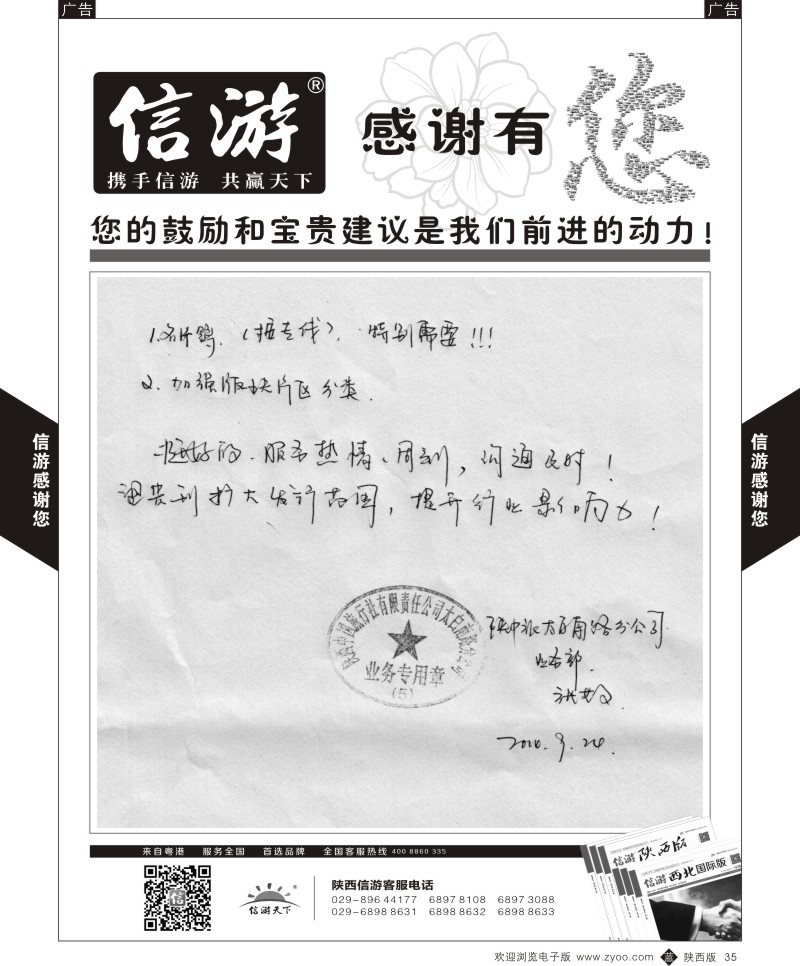 广告
广告
信游®
携手信游 共赢天下
感谢有
您
您的鼓励和宝贵建议是我们前进的动力！
特别需要!!!
2. 加强版块片区分类.
挺好的. 服务热情、周到，沟通及时！
望贵刊扩大发行范围，提升行业影响力！
业务专用章
(5)
业务部
信游感谢您
信游感谢您
来自粤港 服务全国 首选品牌 全国客服热线 400 8860 335
信游
信游天下®
陕西信游客服电话
029-896 44177 6897 8108 6897 3088
029-6898 8631 6898 8632 6898 8633
信游 陕西版
信游 西北国际版
欢迎浏览电子版 www.zyoo.com 蓝 陕西版 35